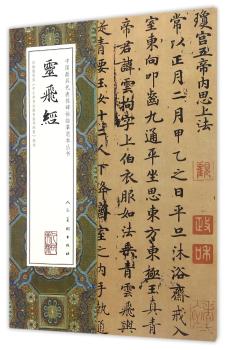 瓊宮五帝內思上法
常以正月二月甲乙之日平旦沐浴齋戒入
室東向叩齒九通平坐思東方東極玉真青
帝君諱雲拘字上伯衣服如法乘青雲飛輿
從青要玉女十二人下降齋室之內手執通
政和
中国最具代表性碑帖临摹范本丛书
靈飛經
人民美術出版社